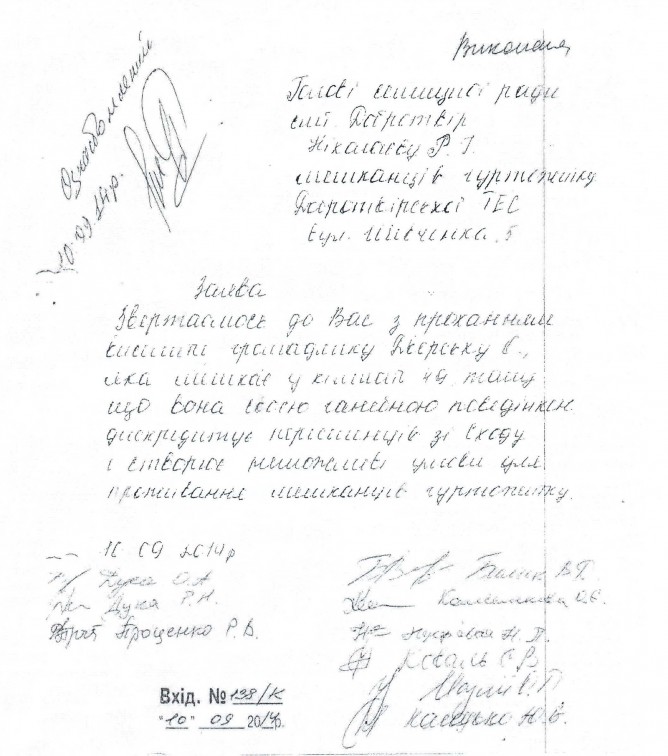 Виконати
Ознайомлений
10.09.14р.
Голові селищної ради
смт Добротвір
Ніколаєву Р. Г.
мешканців гуртожитку
Добротвірської ТЕС
вул. Шевченка, 5
Заява
Звертаємось до Вас з проханням
виселити громадянку
яка мешкає у кімнаті 49, тому
що вона своєю ганебною поведінкою
дискредитує переселенців зі Сходу
і створює неможливі умови для
проживання мешканців гуртожитку.
10 09 2014р
Дука О.А
Дука Р.Н.
Проценко Р.В.
В.Р.
О.С.
Н.
Коваль С В
Ю.В.
Вхід. № 198/К
"10" 09 2014р.